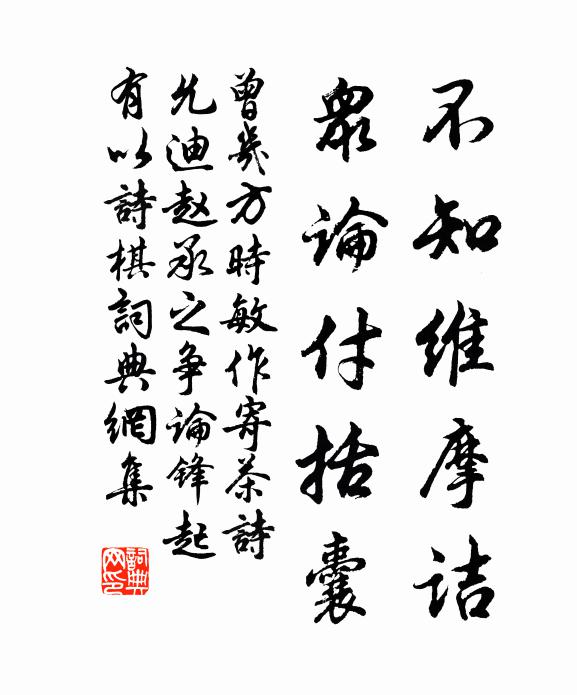 不知维摩詰
眾論付括囊
曾幾方時敏作寄茶詩
允迪赵承之争論锋起
有以詩棋詞典網集
詞典网印